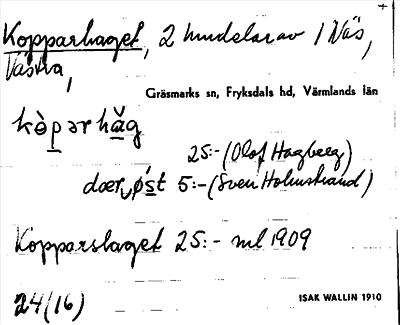 Kopparhaget, 2 hundelar av 1 Näs,
Västra,
Gräsmarks sn, Fryksdals hd, Värmlands län
kòpərhǎg
25:- (Olof Hagberg)
dær øst 5:- (Sven Holmstrand)
Kopparshaget 25:- ml 1909
24(16)
ISAK WALLIN 1910